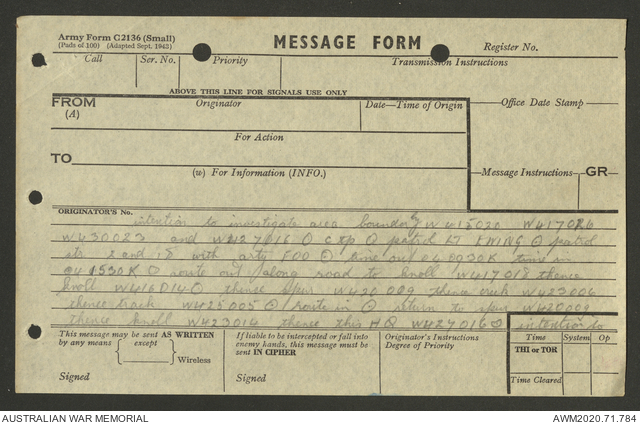 Army Form C2136 (Small)
(Pads of 100) (Adapted Sept. 1942)
MESSAGE FORM
Register No.
Call
Ser. No.
Priority
Transmission Instructions
ABOVE THIS LINE FOR SIGNALS USE ONLY
FROM
(A)
Originator
Date—Time of Origin
Office Date Stamp
For Action
TO
(w) For Information (INFO.)
Message Instructions
GR
ORIGINATOR'S No.
intention to investigate area boundary W415020 W417026
W430023 and W427016 patrol LT EWING patrol
str 2 and 18 with arty FOO time out 040930K time in
041530K route out along road to knoll W417018 thence
knoll W416014 thence spur W420009 thence creek W423006
thence track W425005 route in return to spur W420009
thence knoll W423014 thence this HQ W427016 intention to
This message may be sent AS WRITTEN
by any means
except
Wireless
Signed
If liable to be intercepted or fall into
enemy hands, this message must be
sent IN CIPHER
Signed
Originator's Instructions
Degree of Priority
Time
System
Op
THI or TOR
Time Cleared
AUSTRALIAN WAR MEMORIAL
AWM2020.71.784